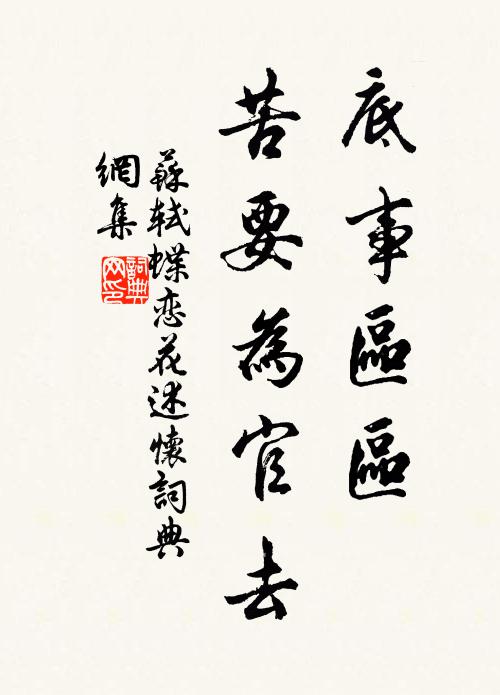 底事區區
苦要為官去
蘇軾蝶恋花述懷詞典
網集
詞典
网印